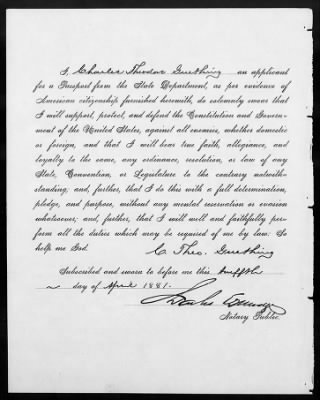 I, Charles Theodore Guething an applicant
for a Passport from the State Department, as per evidence of
American citizenship furnished herewith, do solemnly swear that
I will support, protect, and defend the Constitution and Govern-
ment of the United States, against all enemies, whether domestic
or foreign, and that I will bear true faith, allegiance, and
loyalty to the same, any ordinance, resolution, or law of any
State, Convention, or Legislature to the contrary notwith-
standing; and, further, that I do this with a full determination,
pledge, and purpose, without any mental reservation or evasion
whatsoever; and, further, that I will well and faithfully per-
form all the duties which may be required of me by law: So
help me God.
C. Theo. Guething
Subscribed and sworn to before me this
day of April 1881.
Charles
Notary Public.